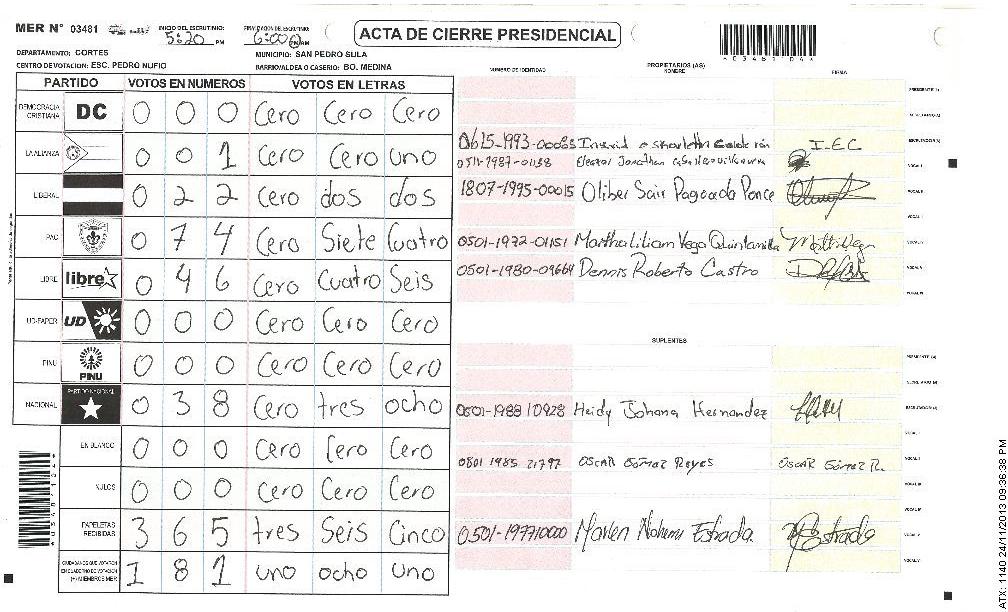 MER N° 03481 INICIO DEL ESCRUTINIO: 5:20 PM FINALIZACION DEL ESCRUTINIO: 6:00 PM ACTA DE CIERRE PRESIDENCIAL
DEPARTAMENTO: CORTES MUNICIPIO: SAN PEDRO SULA
CENTRO DE VOTACION: ESC. PEDRO NUFIO BARRIO/ALDEA O CASERIO: BO. MEDINA
PARTIDO VOTOS EN NUMEROS VOTOS EN LETRAS
DEMOCRACIA CRISTIANA DC 0 0 0 Cero Cero Cero
LA ALIANZA 0 0 1 Cero Cero uno
LIBERAL 0 2 2 Cero dos dos
PAC 0 7 4 Cero Siete Cuatro
LIBRE libre 0 4 6 Cero Cuatro Seis
UD-FAPER UD 0 0 0 Cero Cero Cero
PINU PINU 0 0 0 Cero Cero Cero
NACIONAL PARTIDO NACIONAL 0 3 8 Cero tres ocho
EN BLANCO 0 0 0 Cero Cero Cero
NULOS 0 0 0 Cero Cero Cero
PAPELETAS RECIBIDAS 3 6 5 tres Seis Cinco
CIUDADANOS QUE VOTARON EN CUADERNO DE VOTACION (+) MIEMBROS MER 1 8 1 uno ocho uno
NUMERO DE IDENTIDAD PROPIETARIOS (AS) NOMBRE FIRMA
PRESIDENTE (A)
SECRETARIO (A)
0615-1993-00083 I.E.C ESCRUTADOR (A)
0511-1987-01138 Eleazar Jonathan VOCAL I
1807-1995-00015 Oliber Sair Pagoada Ponce VOCAL II
0501-1972-01151 Martha Liliam Vega Quintanilla VOCAL IV
0501-1980-09664 Dennis Roberto Castro VOCAL V
SUPLENTES
PRESIDENTE (A)
SECRETARIO (A)
0501-1988 10928 Heidy Johana Hernandez ESCRUTADOR (A)
0801 1985 21797 OSCAR Gómez Reyes OSCAR Gómez R. VOCAL II
0501-1977 10000 Marlen Nohemi Estrada Estrada VOCAL V
*03481104*
ATX: 1140 24/11/2013 09:36:38 PM